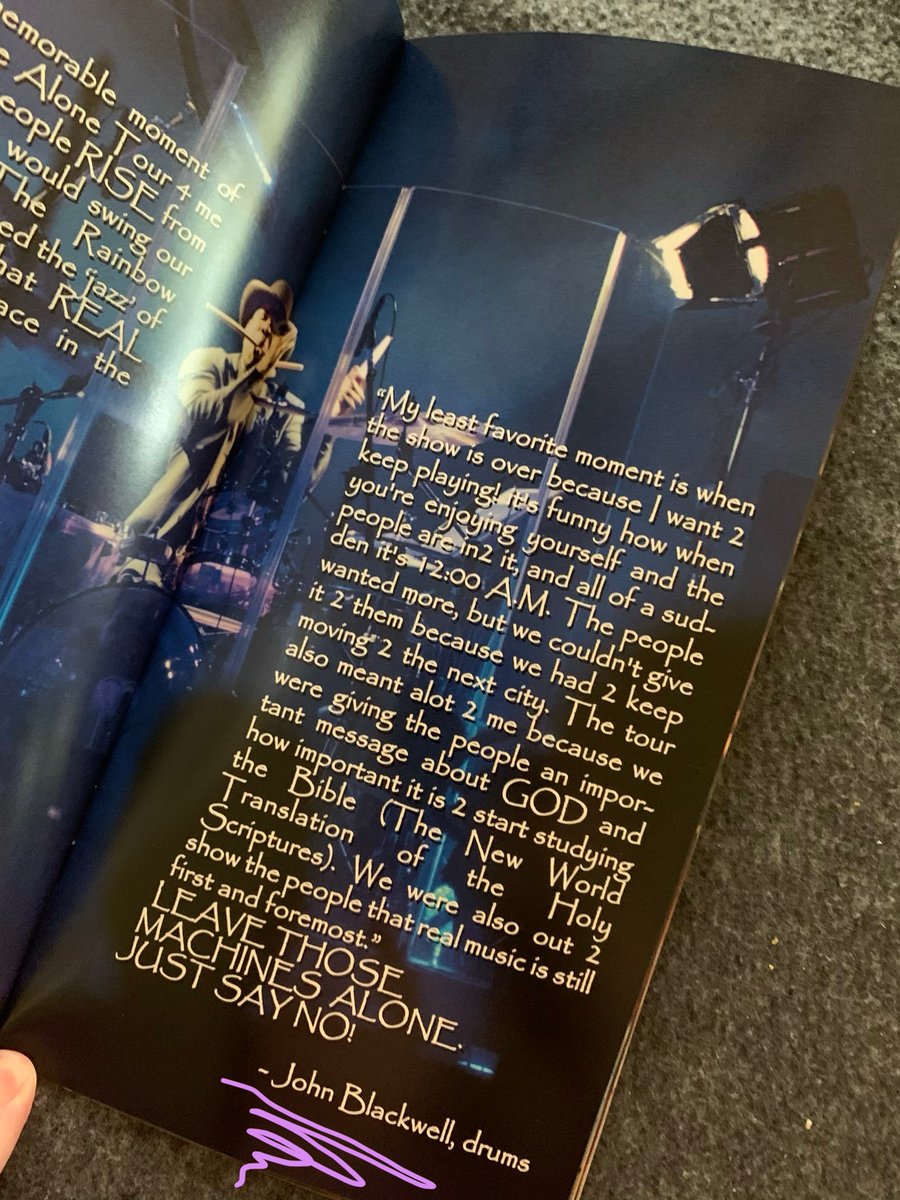 emorable moment of
Alone Tour 4 me
eople RISE from
would swing our
The Rainbow
ed the 'jazz' of
hat REAL
ace in the
"My least favorite moment is when
the show is over because I want 2
keep playing! it's funny how when
you're enjoying yourself and the
people are in2 it, and all of a sud-
den it's 12:00 A.M. The people
wanted more, but we couldn't give
it 2 them because we had 2 keep
moving 2 the next city. The tour
also meant alot 2 me because we
were giving the people an impor-
tant message about GOD and
how important it is 2 start studying
the Bible (The New World
Translation of the Holy
Scriptures). We were also out 2
show the people that real music is still
first and foremost."
LEAVE THOSE
MACHINES ALONE.
JUST SAY NO!
- John Blackwell, drums